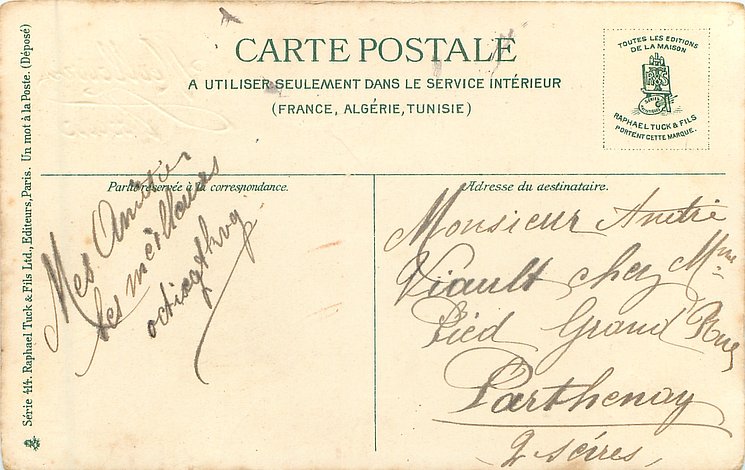 CARTE POSTALE
A UTILISER SEULEMENT DANS LE SERVICE INTÉRIEUR
(FRANCE, ALGÉRIE, TUNISIE)
TOUTES LES EDITIONS
DE LA MAISON
RAPHAEL TUCK & FILS
PORTENT CETTE MARQUE.
Série 414. Raphael Tuck & Fils Ltd., Editeurs, Paris. Un mot à la Poste. (Déposé)
Partie réservée à la correspondance.
Mes Amitiés
les meilleures
Adresse du destinataire.
Monsieur André
Viault chez Mme
Pied Grand Rue
Parthenay
2 Sèvres